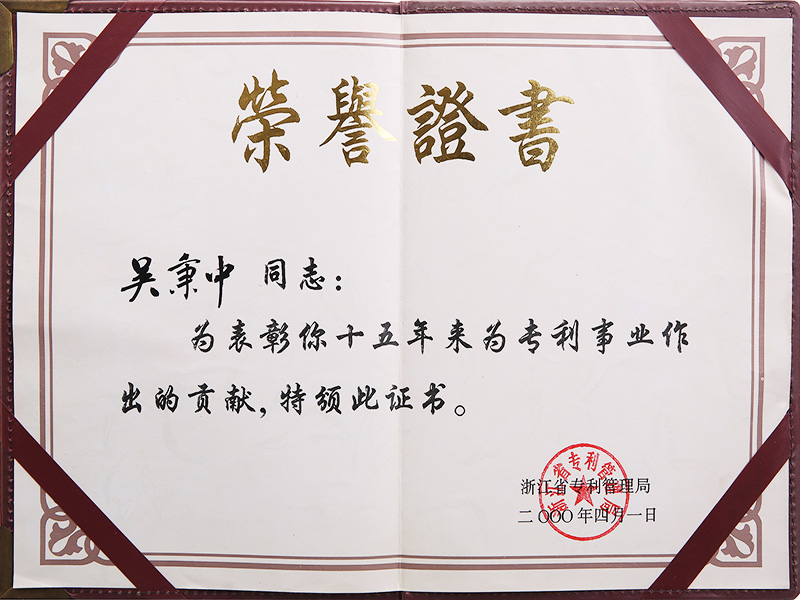 榮譽證書
吴秉中 同志：
为表彰你十五年来为专利事业作
出的贡献，特颁此证书。
浙江省专利管理局
浙江省专利管理局
二〇〇〇年四月一日